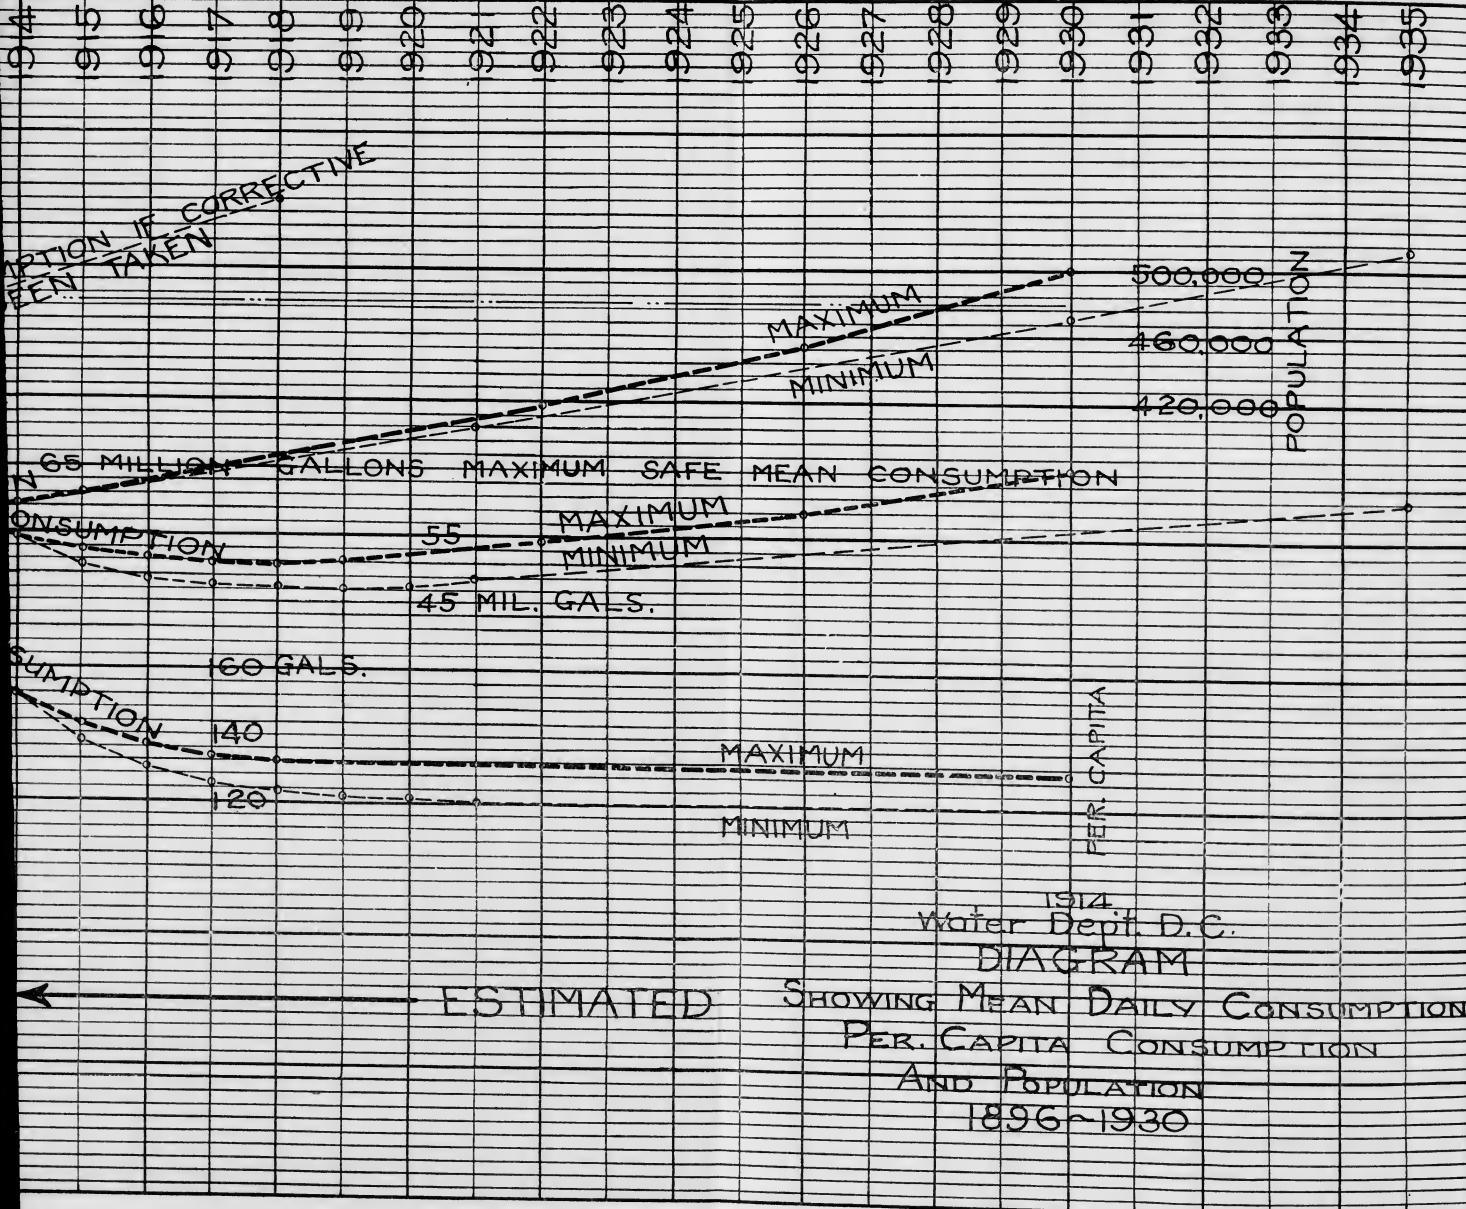 1914 1915 1916 1917 1918 1919 1920 1921 1922 1923 1924 1925 1926 1927 1928 1929 1930 1931 1932 1933 1934 1935
MPTION IF CORRECTIVE
EEN TAKEN
MAXIMUM
MINIMUM
500,000
460,000
420,000
POPULATION
N
65 MILLION GALLONS MAXIMUM SAFE MEAN CONSUMPTION
ONSUMPTION
55
MAXIMUM
MINIMUM
45 MIL. GALS.
SUMPTION
160 GALS.
140
120
MAXIMUM
MINIMUM
PER. CAPITA
1914
Water Dept. D.C.
DIAGRAM
ESTIMATED
SHOWING MEAN DAILY CONSUMPTION
PER. CAPITA CONSUMPTION
AND POPULATION
1896~1930